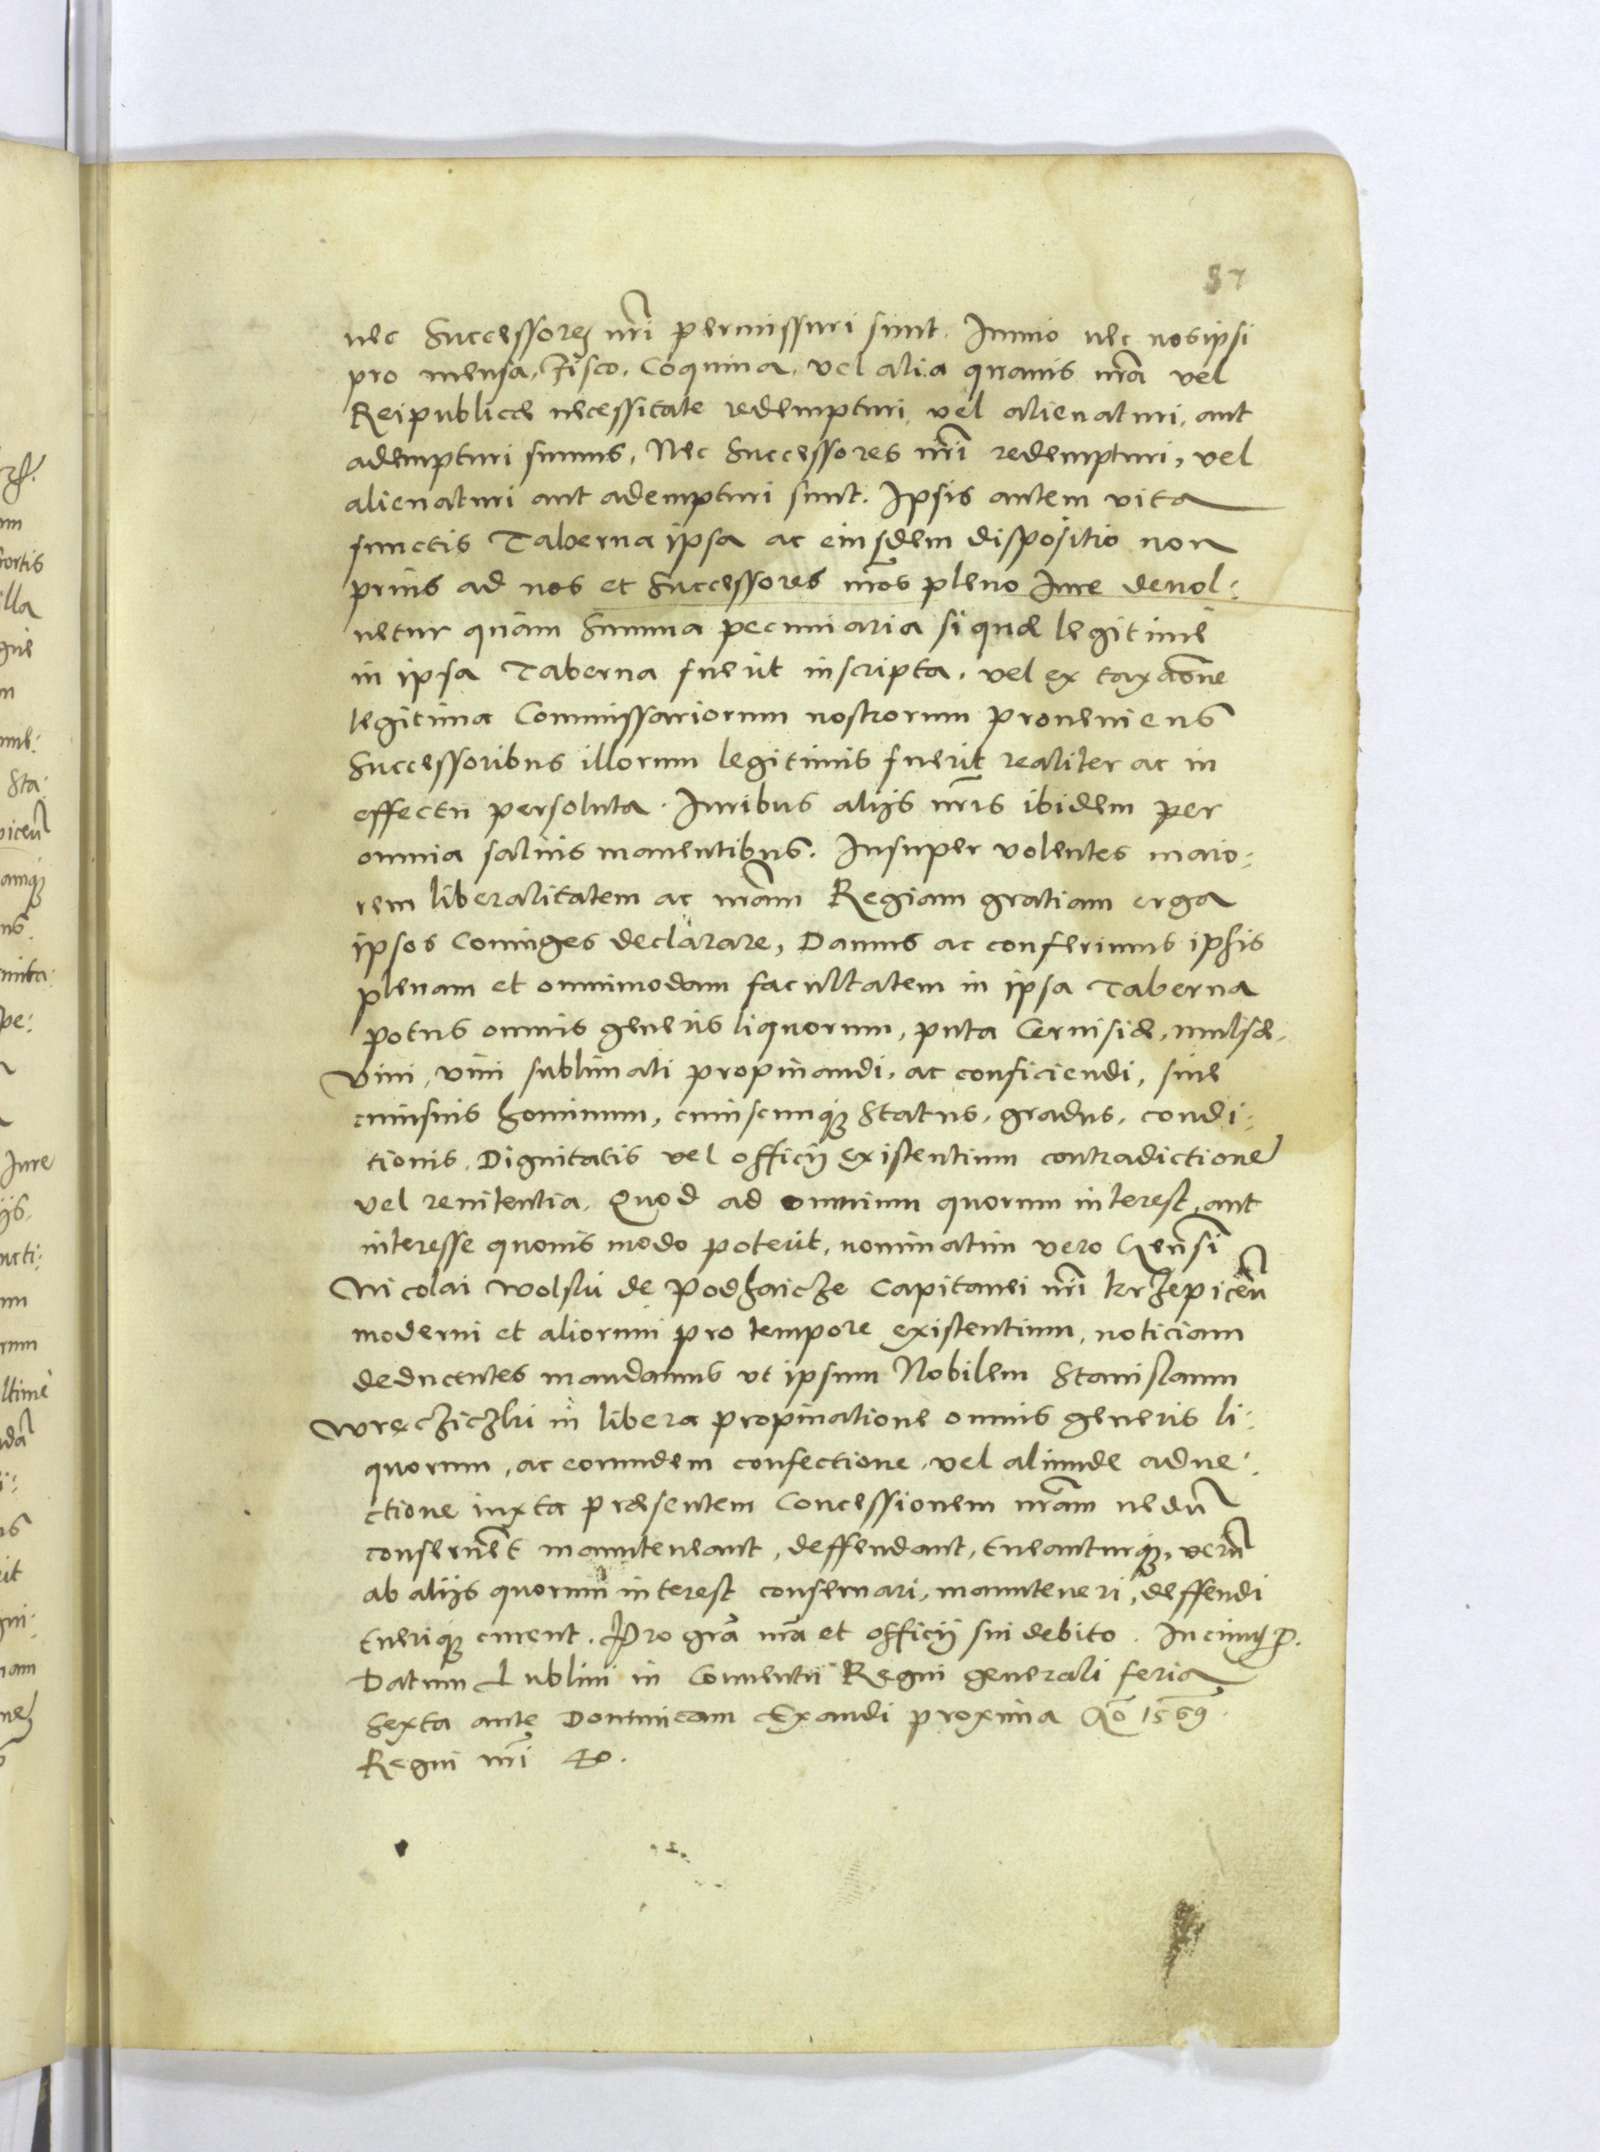 87
nec Successores nri permissuri sunt. Immo nec nosipsi
pro mensa, Fisco, Coquina, vel alia quauis nra vel
Reipublicæ necessitate redempturi vel alienaturi, aut
adempturi sumus, Nec Successores nri redempturi, vel
alienaturi aut adempturi sunt. Ipsis autem vita
functis Taberna ipsa ac eiusdem dispositio non
prius ad nos et Successores nros pleno Iure deuol:
uetur quam Summa pecuniaria si quæ legitime
in ipsa Taberna fuerit inscripta, vel ex taxacone
legitima Commissariorum nostrorum proueniens
Successoribus illorum legitimis fuerit realiter ac in
effectu persoluta. Iuribus alijs nris ibidem per
omnia saluis manentibus. Insuper volentes maio:
rem liberalitatem ac nram Regiam gratiam erga
ipsos Coniuges declarare, Damus ac conferimus ipsis
plenam et omnimodam facultatem in ipsa Taberna
potus omnis generis liquorum, puta Ceruisiæ, mulsæ,
vini, vini sublimati propinandi, ac conficiendi, sine
cuiusuis hominum, cuiuscunq; Status, gradus, condi:
tionis, Dignitatis vel officij existentium contradictione
vel renitentia. Quod ad omnium quorum interest, aut
interesse quouis modo poterit, nominatim vero Gensi
Nicolai Wolski de Podhaicze Capitanei nri krzepicen
moderni et aliorum pro tempore existentium, noticiam
deducentes mandamus vt ipsum Nobilem Stanislaum
Wręczičzki in libera propinatione omnis generis li:
quorum, ac eorundem confectione, vel aliunde adue:
ctione iuxta præsentem Concessionem nram nedu
conseruent manuteneant, deffendant, tneanturq;, veru
ab alijs quorum interest conseruari, manuteneri, deffendi
tnerique curent. Pro gra nra et officij sui debito. In cuius r.
Datum Lublini in Conuentu Regni generali feria
Sexta ante Dominicam Exaudi proxima Ao 1569.
Regni nri 40.